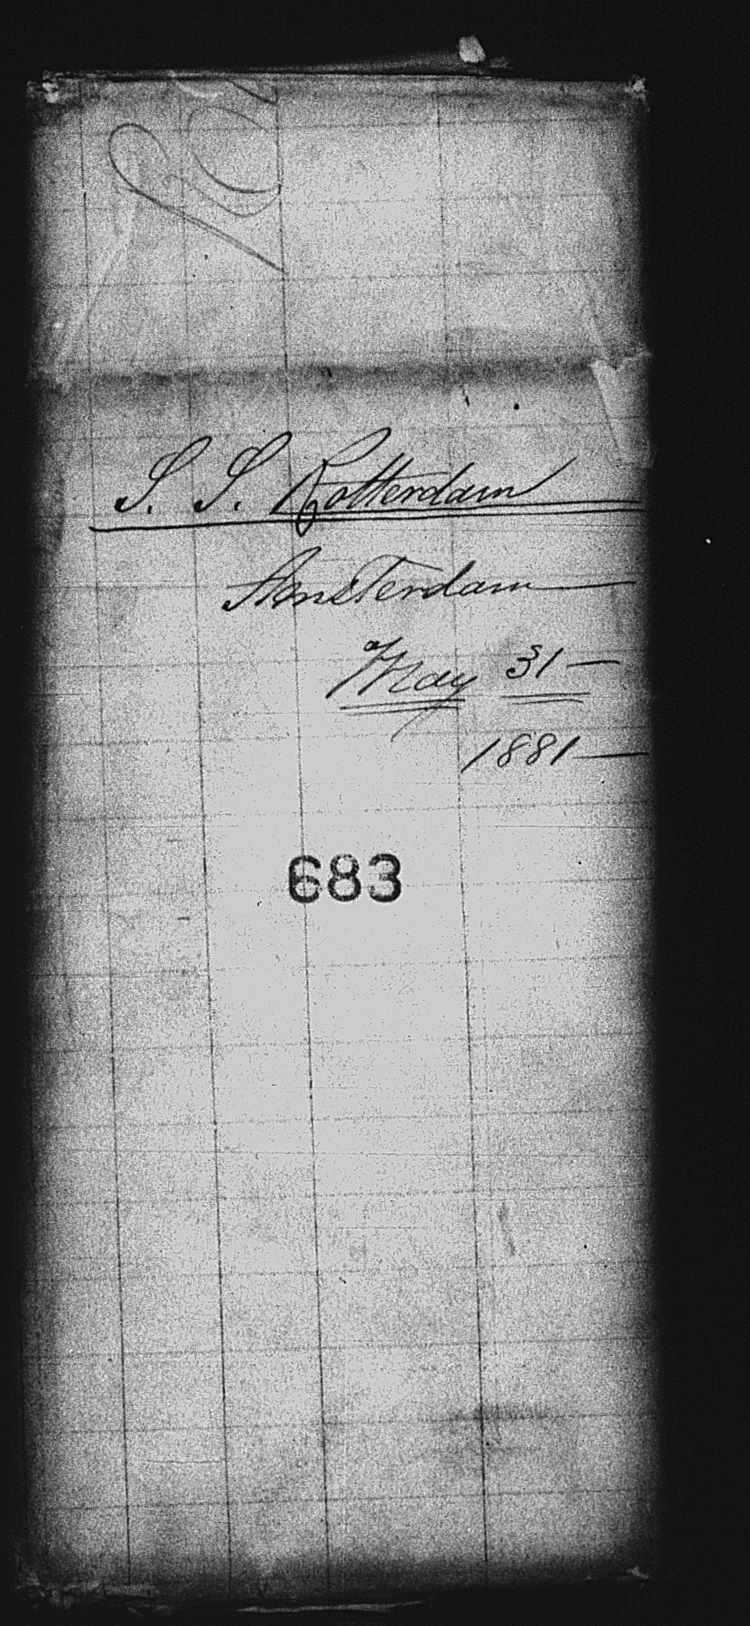 S. S. Rotterdam
Amsterdam
May 31
1881
683